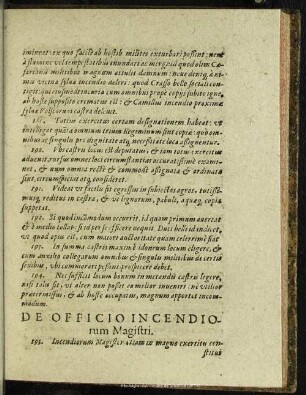 imineat: ex quo facilè ab hostib. milites exturbari possint: nec
à flumine vel tempestatibus inundari ac mergi: id quod olim Cæ-
sarianis militibus magnum attulit damnum: nec denique, à ni-
mia vicina sylua incendio deleri: quod Crasso bello sociali con-
tigit: qui eius industria cum omnibus prope copijs subito igne,
ab hoste supposito crematus est: & Camillus incendio proximæ
syluæ Volscorum castra deleuit.
189. Totius exercitus certam designationem habeat: vt
intelligat quæ omnium rerum segmina sint copiæ: quò om-
nibus ac singulis pro dignitate atq, necessitate loca assignentur.
190. Vbi castris locus est deputatus, & iam totus exercitus
aduenit, rursus omnes loci circumstantias accuratissimè exami-
net, & num omnia rectè & commodè assignata & ordinata
sint, circumspiciat atq, consideret.
191. Videat vt facilis sit egressus in subiectos agros, tutissi-
musq, reditus in castra, & vt lignorum, pabuli, aquæq, copia
suppetat.
192. Si quod incommodum occurrit, id quamprimum auertat
& è medio tollat: si id per se efficere nequit, Duci belli id indicet,
vt quod opus est, cum maiore auctoritate quàm celerrimè fiat
193. In summa castris maximè idoneum locum eligere, &
cum annexo collegarum omnibus & singulis militibus de certis
sedibus, vbi commorari possint, prospicere debet.
194. Nec sufficit locum bonum in metandis castris legere,
nisi talis sit, vt alter non posset eo melior inueniri: ne vtilior
prætermissus, & ab hoste occupatus, magnum apportet incom-
modum.
DE OFFICIO INCENDIO-
rum Magistri.
195. Incendiorum Magister etiam in magno exercitu con-
stitui